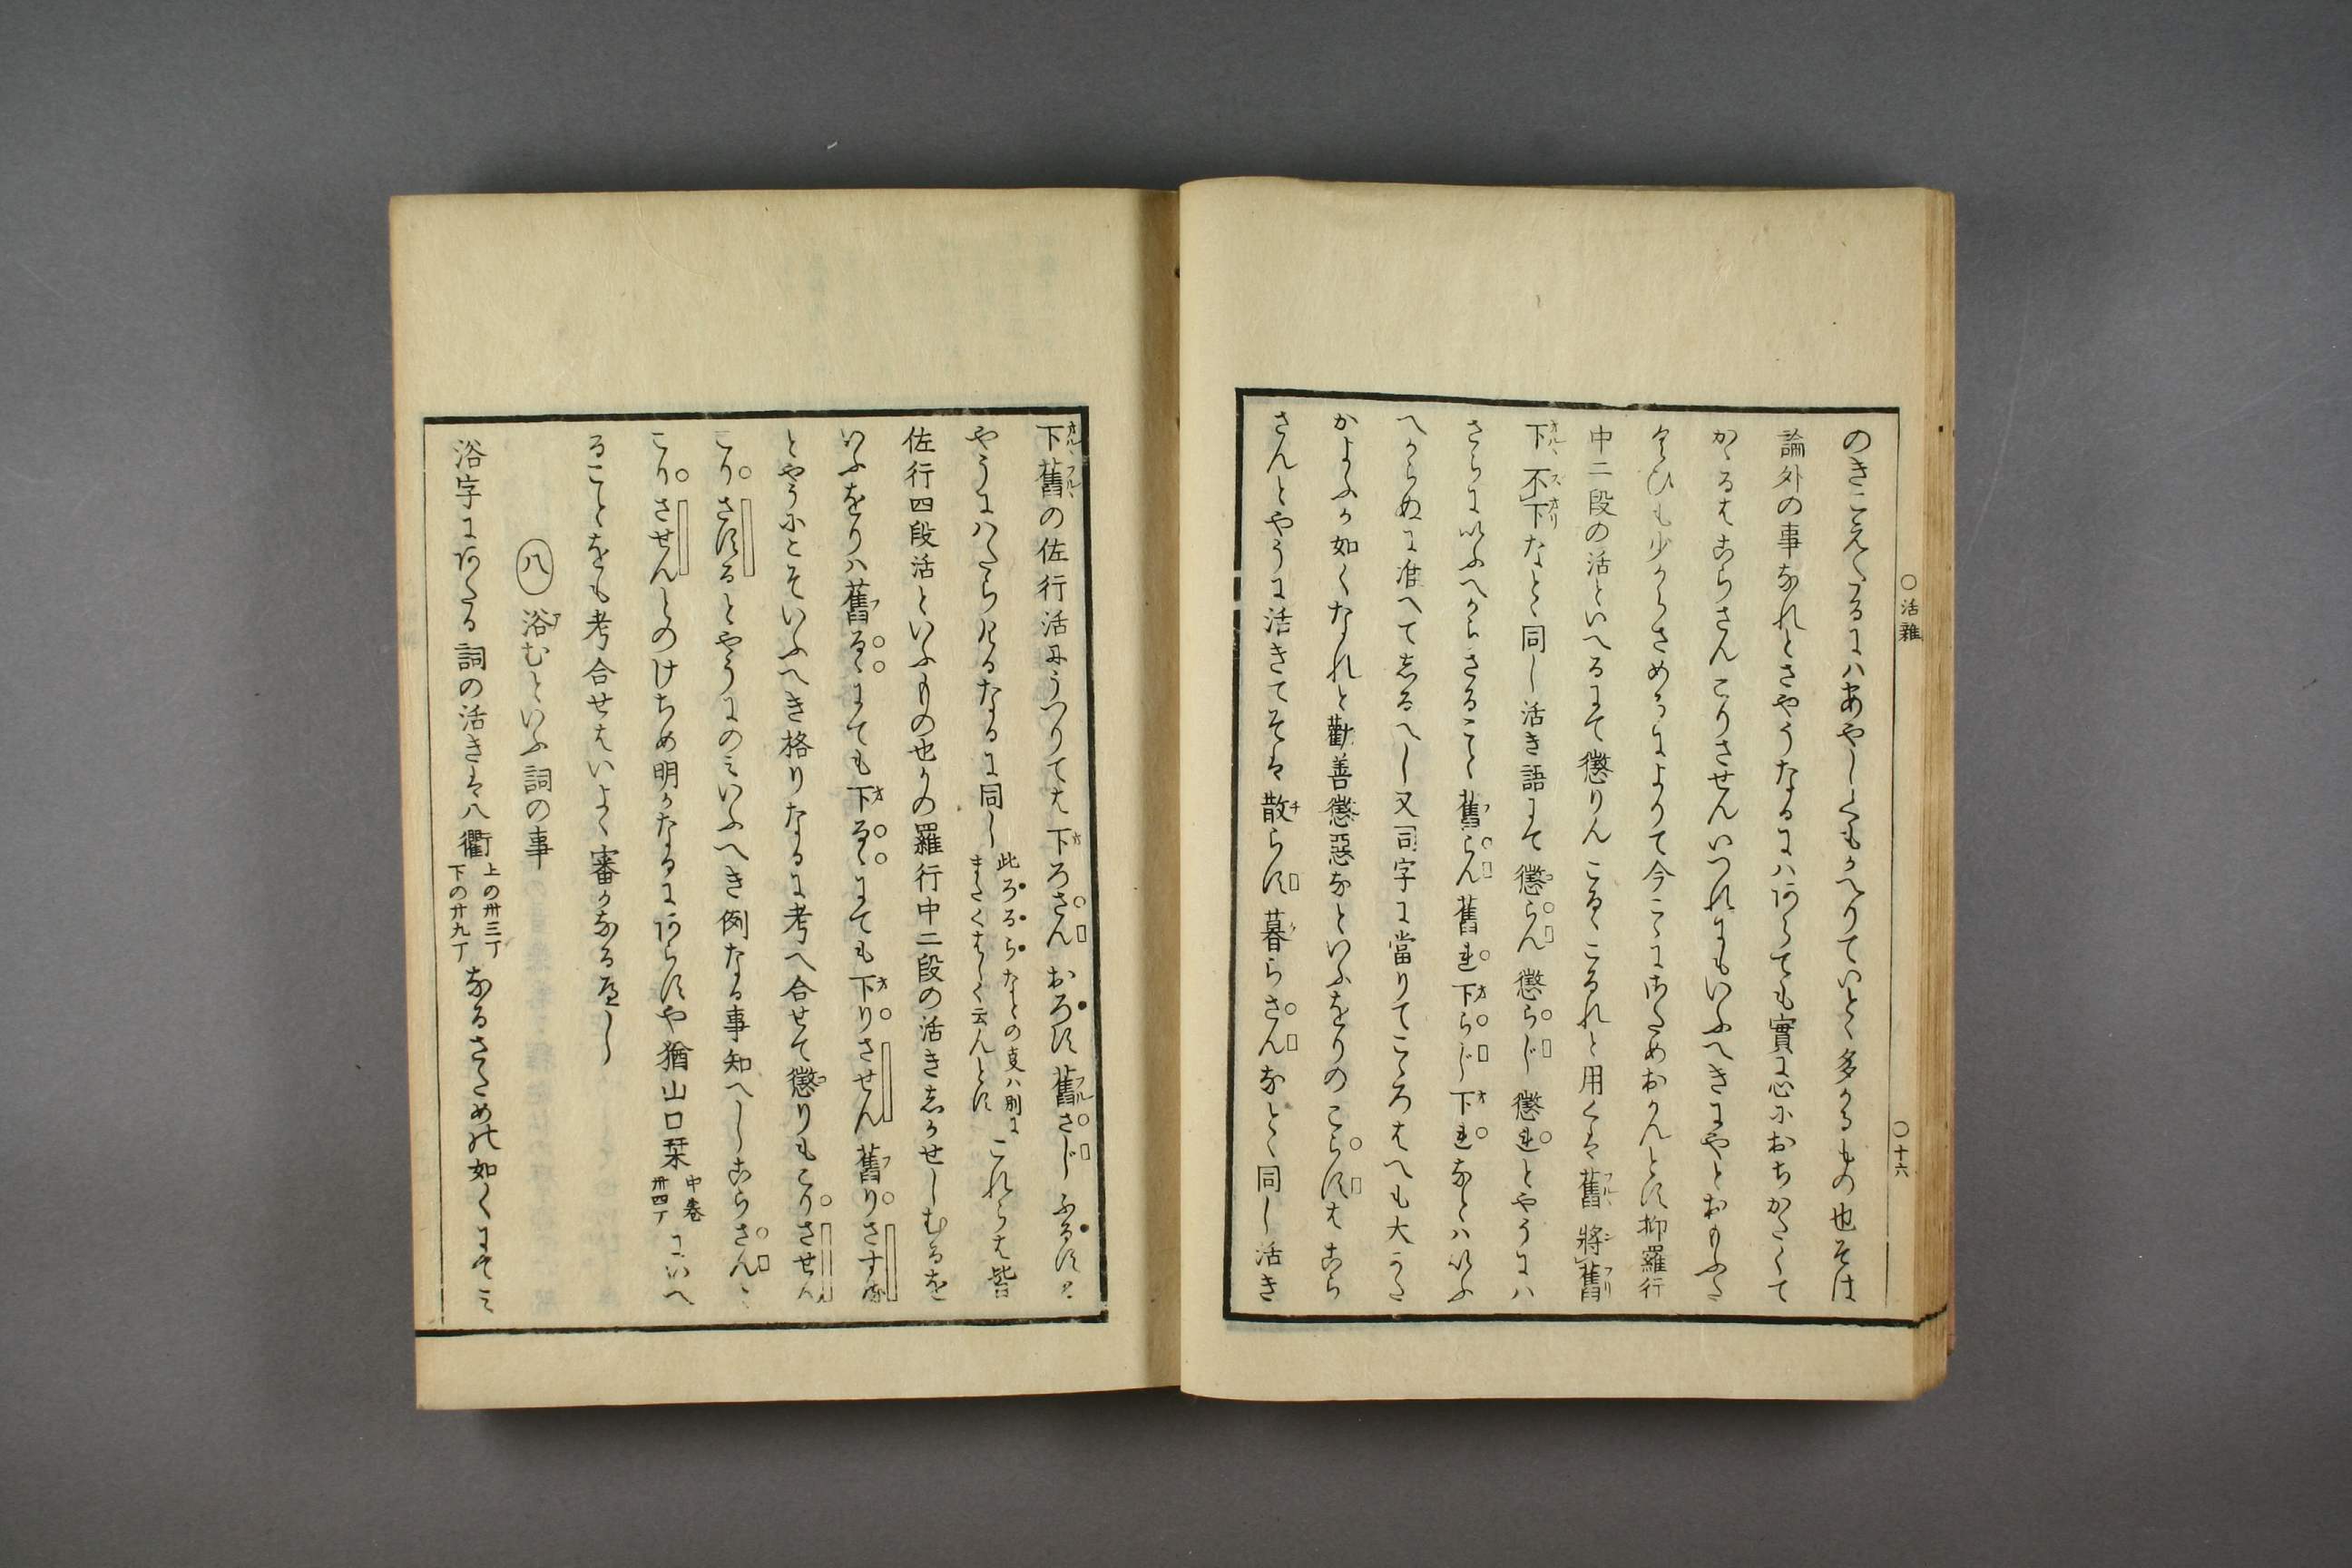 ○活雜
○十六
のきこえたるにハあやしくもかへりていと多かるもの也そは
論外の事なれとさやうなるにハあらても實に心におちかたくて
かゝるはこらさんこりさせんいつれにもいふへきにやとおもふた
くひも少からさめるによりて今こゝにたゝめおかんとす抑羅行
中二段の活といへるにて懲りんこるゝこるれと用くは舊將舊
下不下なとゝ同し活き語にて懲らん懲らじ懲れとやうにハ
さらにいふへからさること舊らん舊れ下らじ下れなとハいふ
へからぬに准へてしるへし又司字に當りてこゝろはへも大かた
かよふか如くなれと勸善懲惡なといふをりのこらすはこら
さんとやうに活きてそは散らす暮らさんなとゝ同し活き
下舊の佐行活にうつりては下ろさんおろす舊さじふるすと
やうにハたらけるなるに同し
此ろるらなとの支ハ別に
またくはしく云んとす
これらは皆
佐行四段活といふもの也かの羅行中二段の活きしかせしむるを
いふをりハ舊るゝにても下るゝにても下りさせん舊りさする
とやうにこそいふへき格りなるに考へ合せて懲りもこりさせん
こりさするとやうにのミいふへき例なる事知へしこらさんと
こりさせんとのけちめ明かなるにあらすや猶山口栞
中巻
卅四丁
にいへ
ることをも考合せはいよゝ審かなる可し
八 浴むといふ詞の事
浴字にあたる詞の活きは八衢
上の卅三丁
下の廿九丁
なるさためれ如くにてミ